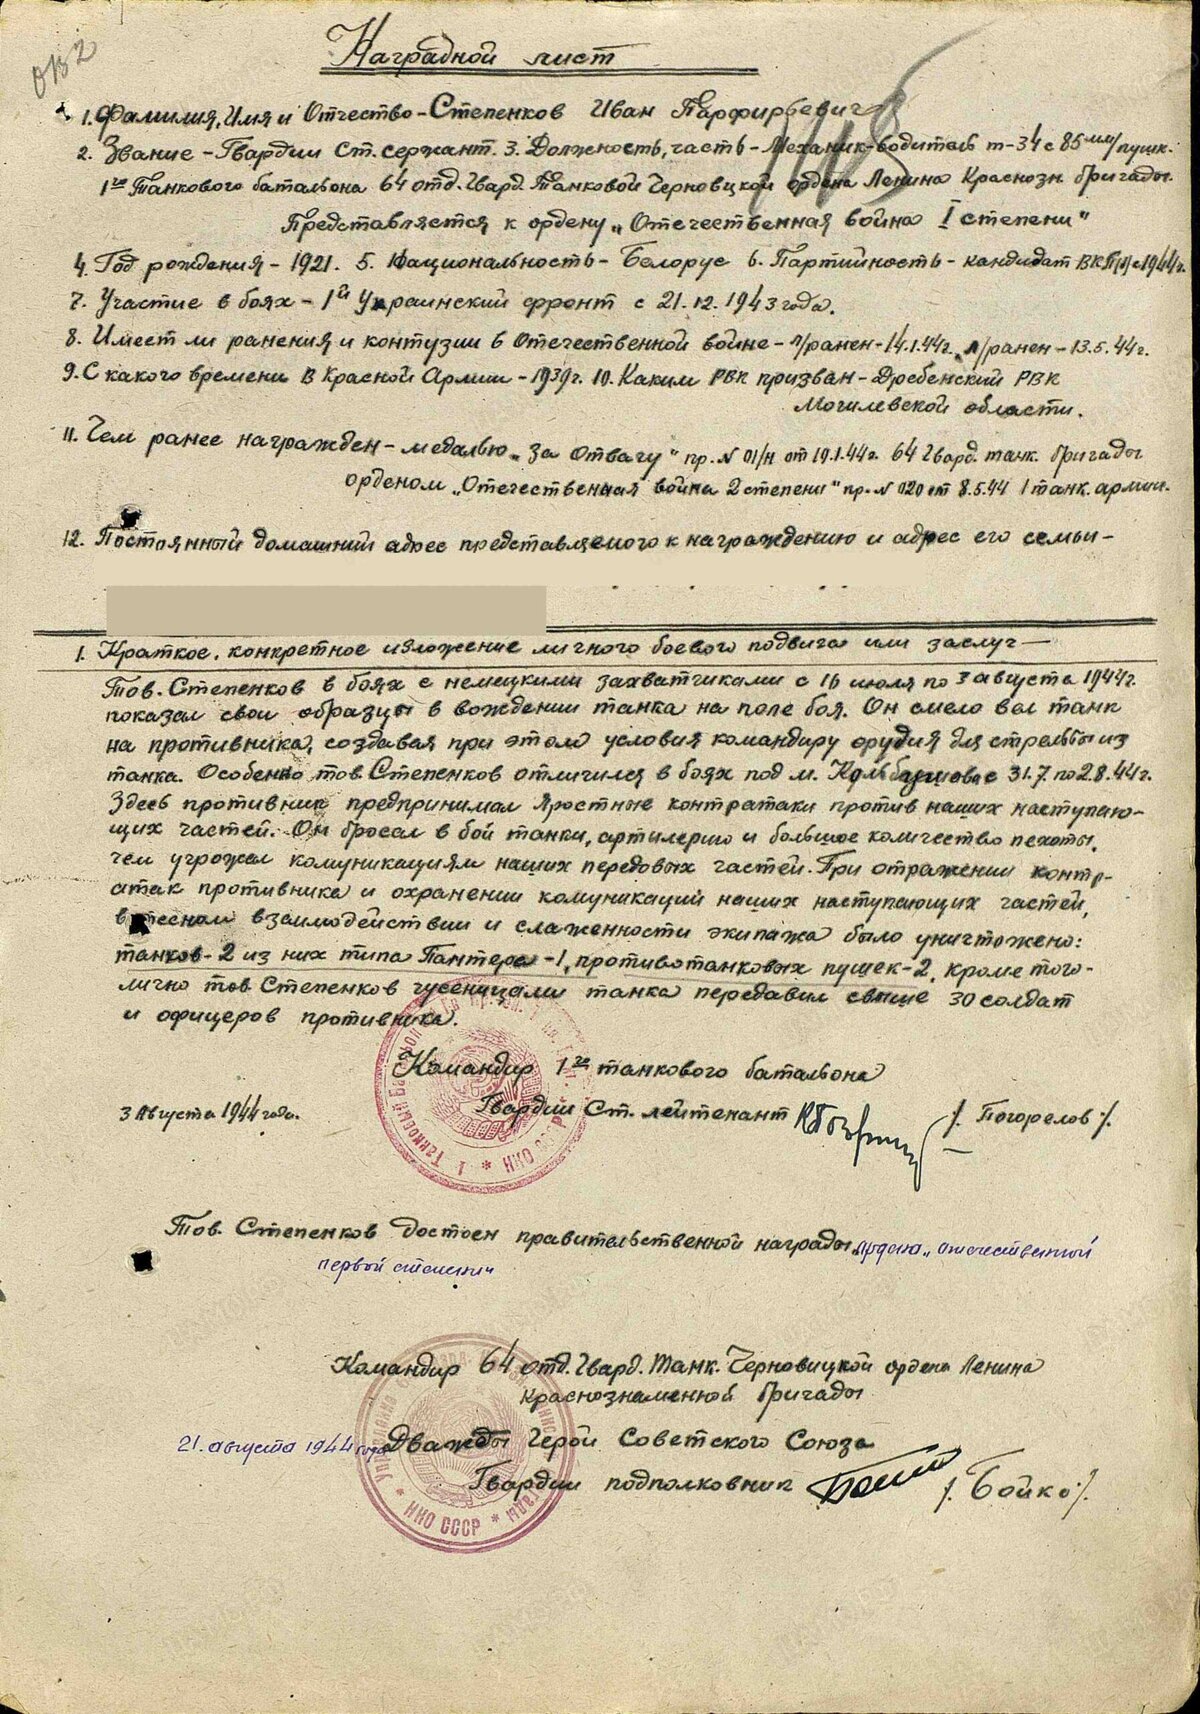 ОВ2
Наградной лист
1. Фамилия, Имя и Отчество - Степенков Иван Парфирьевич
2. Звание - Гвардии Ст. сержант. 3. Должность, часть - Механик-водитель т-34 с 85 мм/пушк.
1го Танкового батальона 64 отд. Гвард. Танковой Черновцкой ордена Ленина Краснозн. бригады.
Представляется к ордену „Отечественная война I степени"
4. Год рождения - 1921. 5. Национальность - Белорус 6. Партийность - кандидат ВКП(б) с 1944 г.
7. Участие в боях - 1й Украинский фронт с 21.12.1943 года.
8. Имеет ли ранения и контузии в Отечественной войне - л/ранен - 14.1.44г. л/ранен - 13.5.44г.
9. С какого времени в Красной Армии - 1939г. 10. Каким РВК призван - Дребенский РВК
Могилевской области.
11. Чем ранее награжден - медалью „За Отвагу" пр. № 01/н от 19.1.44г. 64 Гвард. танк. бригады
орденом „Отечественная война 2 степени" пр. № 020 от 8.5.44 1 танк. армии.
12. Постоянный домашний адрес представляемого к награждению и адрес его семьи -
1. Краткое, конкретное изложение личного боевого подвига или заслуг -
Тов. Степенков в боях с немецкими захватчиками с 16 июля по 3 августа 1944г.
показал свои образцы в вождении танка на поле боя. Он смело вел танк
на противника, создавая при этом условия командиру орудия для стрельбы из
танка. Особенно тов. Степенков отличился в боях под м. Кольбушова с 31.7 по 2.8.44г.
Здесь противник предпринимал яростные контратаки против наших наступаю-
щих частей. Он бросал в бой танки, артилерию и большое количество пехоты,
чем угрожал комуникациям наших передовых частей. При отражении контр-
атак противника и охранении комуникаций наших наступающих частей,
в тесном взаимодействии и слаженности экипажа было уничтожено:
танков - 2 из них типа Пантера - 1, противотанковых пушек - 2, кроме того -
лично тов. Степенков гусеницами танка передавил свыше 30 солдат
и офицеров противника.
Командир 1го танкового батальона
3 Августа 1944 года. Гвардии Ст. лейтенант /. Погорелов /.
1 Танковый НКО СССР
Тов. Степенков достоен правительственной награды ордена „отечественной
первой степени
Командир 64 отд. Гвард. Танк. Черновицкой ордена Ленина
Краснознаменной бригады
21. августа 1944 года Дважды Герой Советского Союза
Гвардии подполковник /. Бойко /.
НКО СССР